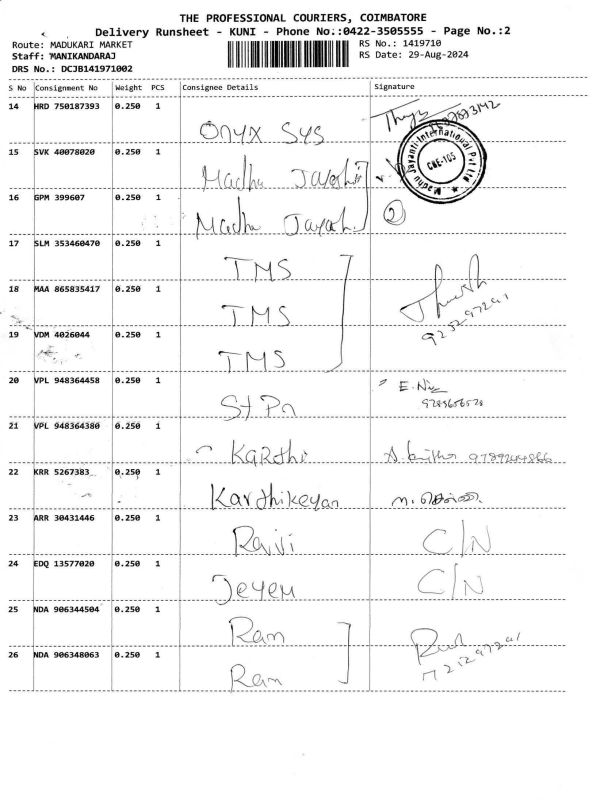 THE PROFESSIONAL COURIERS, COIMBATORE
Delivery Runsheet - KUNI - Phone No.:0422-3505555 - Page No.:2
Route: MADUKARI MARKET RS No.: 1419710
Staff: MANIKANDARAJ RS Date: 29-Aug-2024
DRS No.: DCJB141971002
S No Consignment No Weight PCS Consignee Details Signature
14 HRD 750187393 0.250 1 Onyx Sys
15 SVK 40078020 0.250 1 Madhu Jayanthi
Madhu Jayanti International Pvt Ltd
CBE-105
16 GPM 399607 0.250 1 Madhu Jayanthi 2
17 SLM 353460470 0.250 1 TMS
18 MAA 865835417 0.250 1 TMS
19 VDM 4026044 0.250 1 TMS
20 VPL 948364458 0.250 1 St Pn E.
21 VPL 948364380 0.250 1 Karthi
22 KRR 5267383 0.250 1 Karthikeyan
23 ARR 30431446 0.250 1 C/N
24 EDQ 13577020 0.250 1 Jeyem C/N
25 NDA 906344504 0.250 1 Ram
26 NDA 906348063 0.250 1 Ram